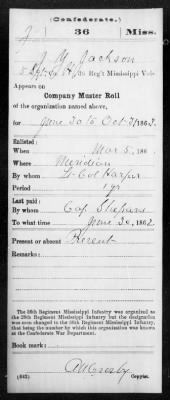 (Confederate.)
J 36 Miss.
J M Jackson
5 Sgt, Co H, 36 Reg't Mississippi Vols
Appears on
Company Muster Roll
of the organization named above,
for June 30 to Oct 31, 1862.
Enlisted:
When Mar 5, 186
Where Meridian
By whom Lt Col Harper
Period 1 yr
Last paid:
By whom Cap
To what time June 30, 1862
Present or absent Present
Remarks:
The 36th Regiment Mississippi Infantry was organized as
the 38th Regiment Mississippi Infantry but the designation
was soon changed to the 36th Regiment Mississippi Infantry,
that being the number by which this organization was known
at the Confederate War Department.
Book mark:
(642) Copyist.